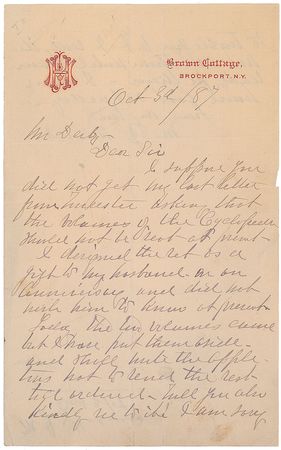 Brown Cottage,
BROCKPORT, N.Y.
Oct 3d /87
Mr Derby -
Dear Sir
I suppose you
did not get my last letter
asking that
the volumes of the Cyclopedia
should not be sent at present -
I designed the set as a
gift to my husband on an
anniversary and did not
wish him to know at present.
Today the two volumes came
but I have put them aside -
and shall
not to send the rest
til ordered - Will you also
kindly I am sorry